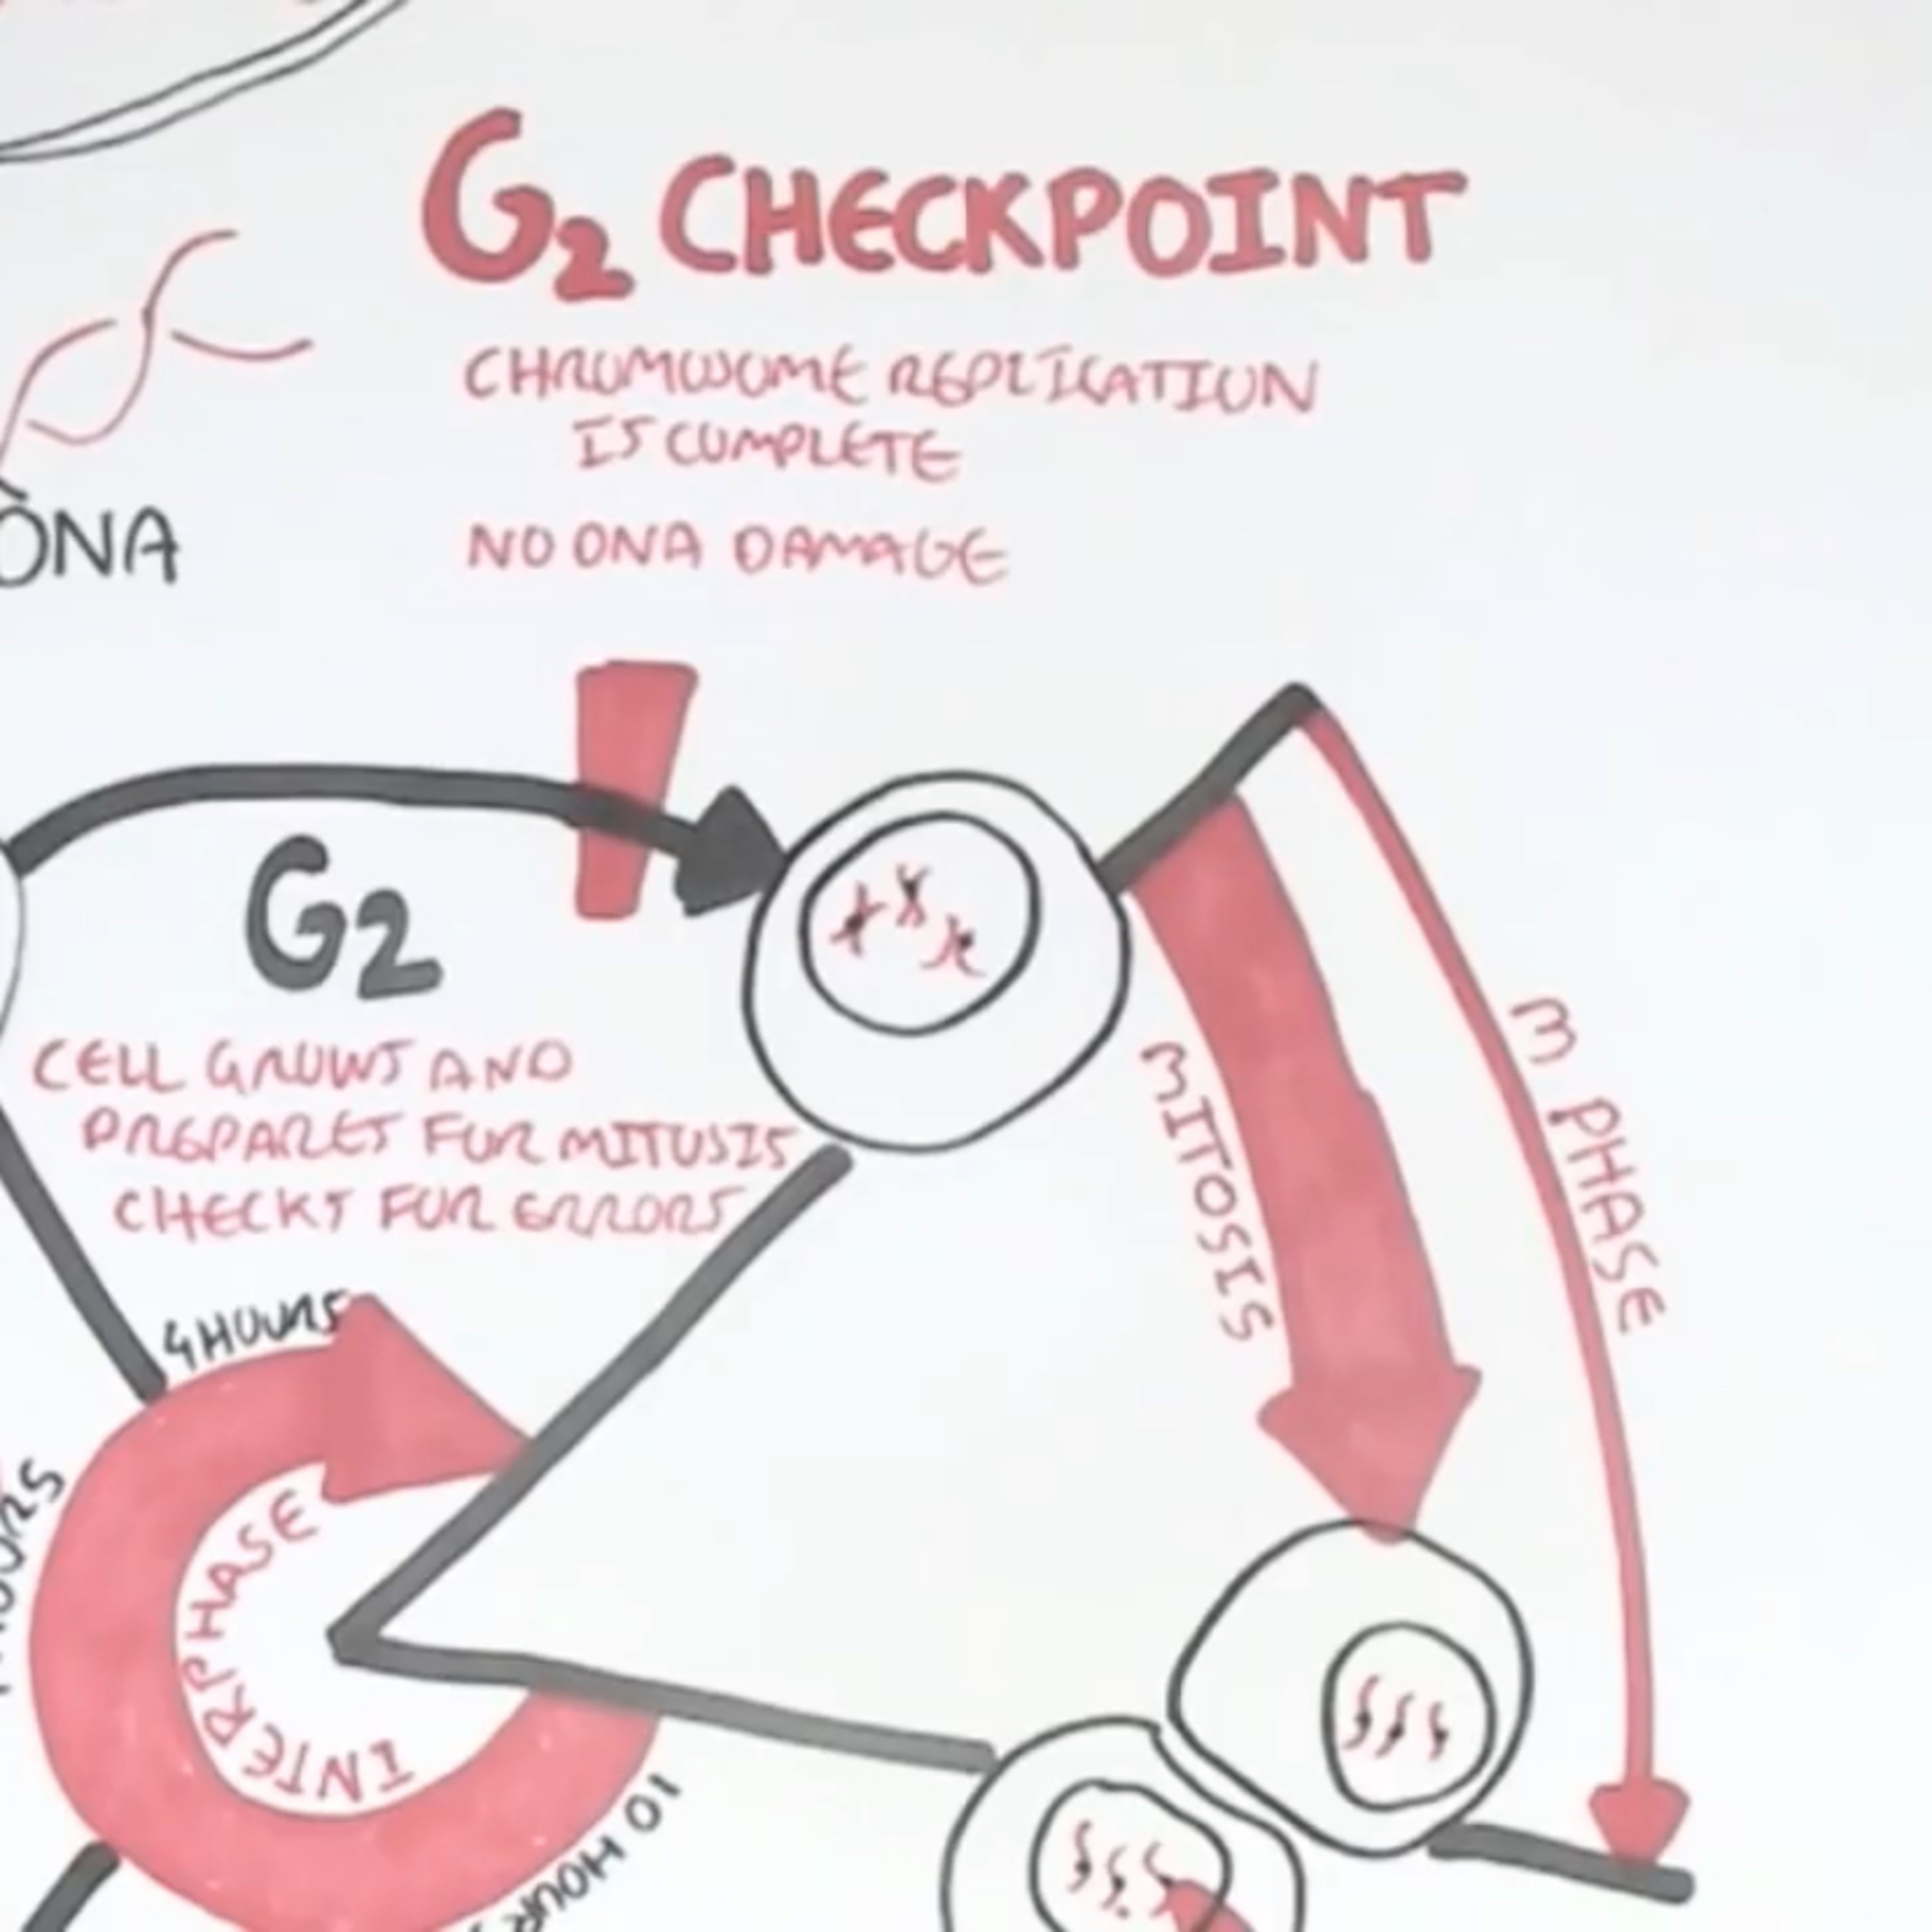 G2 CHECKPOINT
CHROMOSOME REPLICATION
IS COMPLETE
NO DNA DAMAGE
DNA
G2
CELL GROWS AND
PREPARES FOR MITOSIS
CHECKS FOR ERRORS
4 HOURS
INTERPHASE
10 HOUR
MITOSIS
M PHASE